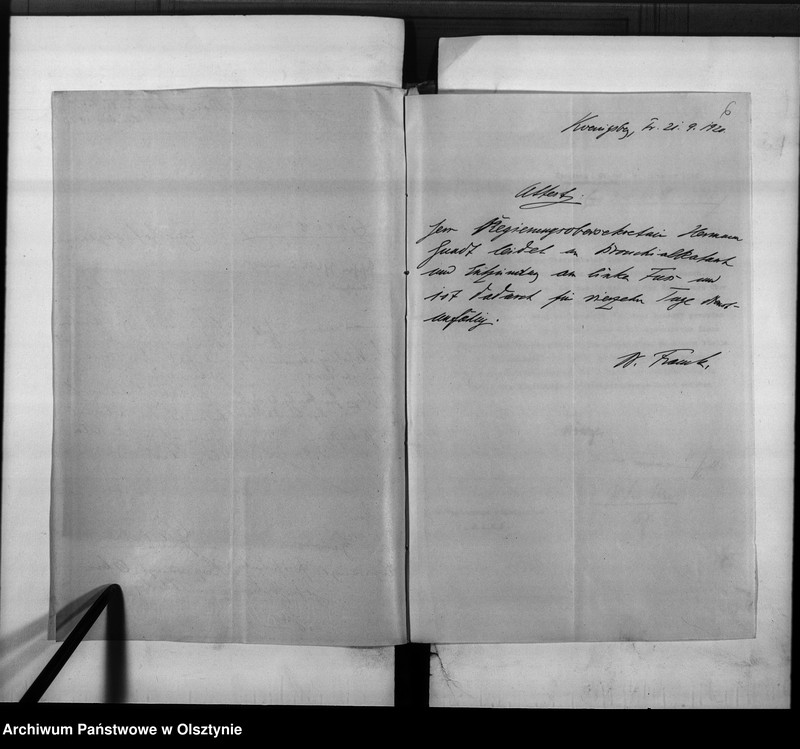 6
Koenigsberg, Pr. 21. 9. 1920.
Attest.
Herr Regierungsobersekretär Hermann
leidet an Bronchialkatarrh
und Entzündung am linken Fuss und
ist dadurch für vierzehn Tage dienst-
unfähig.
Dr. Franck.
Archiwum Państwowe w Olsztynie